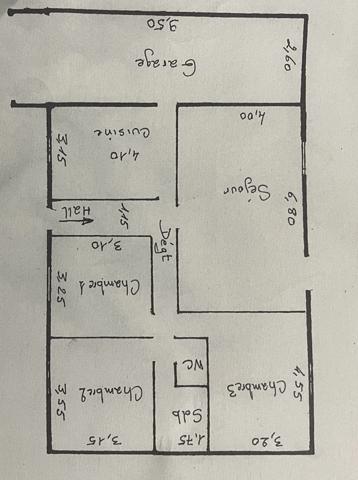 9,50
Garage
2,60
4,00
Cuisine
4,10
3,15
Séjour
6,80
Hall
1,15
Dégt
3,10
Chambre 1
3,25
WC
Chambre 2
3,55
3,15
Sdb
1,75
Chambre 3
4,55
3,20